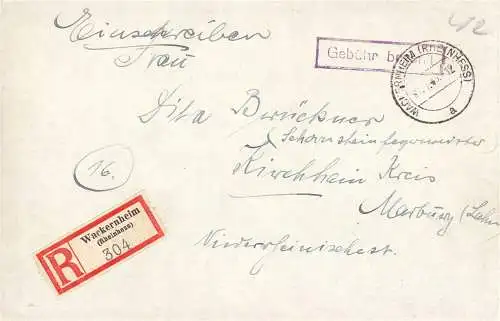 Einschreiben
Frau
Gebühr b
WACKERNHEIM (RHEINHESS)
a
Dita Brückner
Schornsteinfegermeister
Kirchhein Kreis
Marburg (Lahn
16.
R
Wackernheim
(Rheinhess)
304